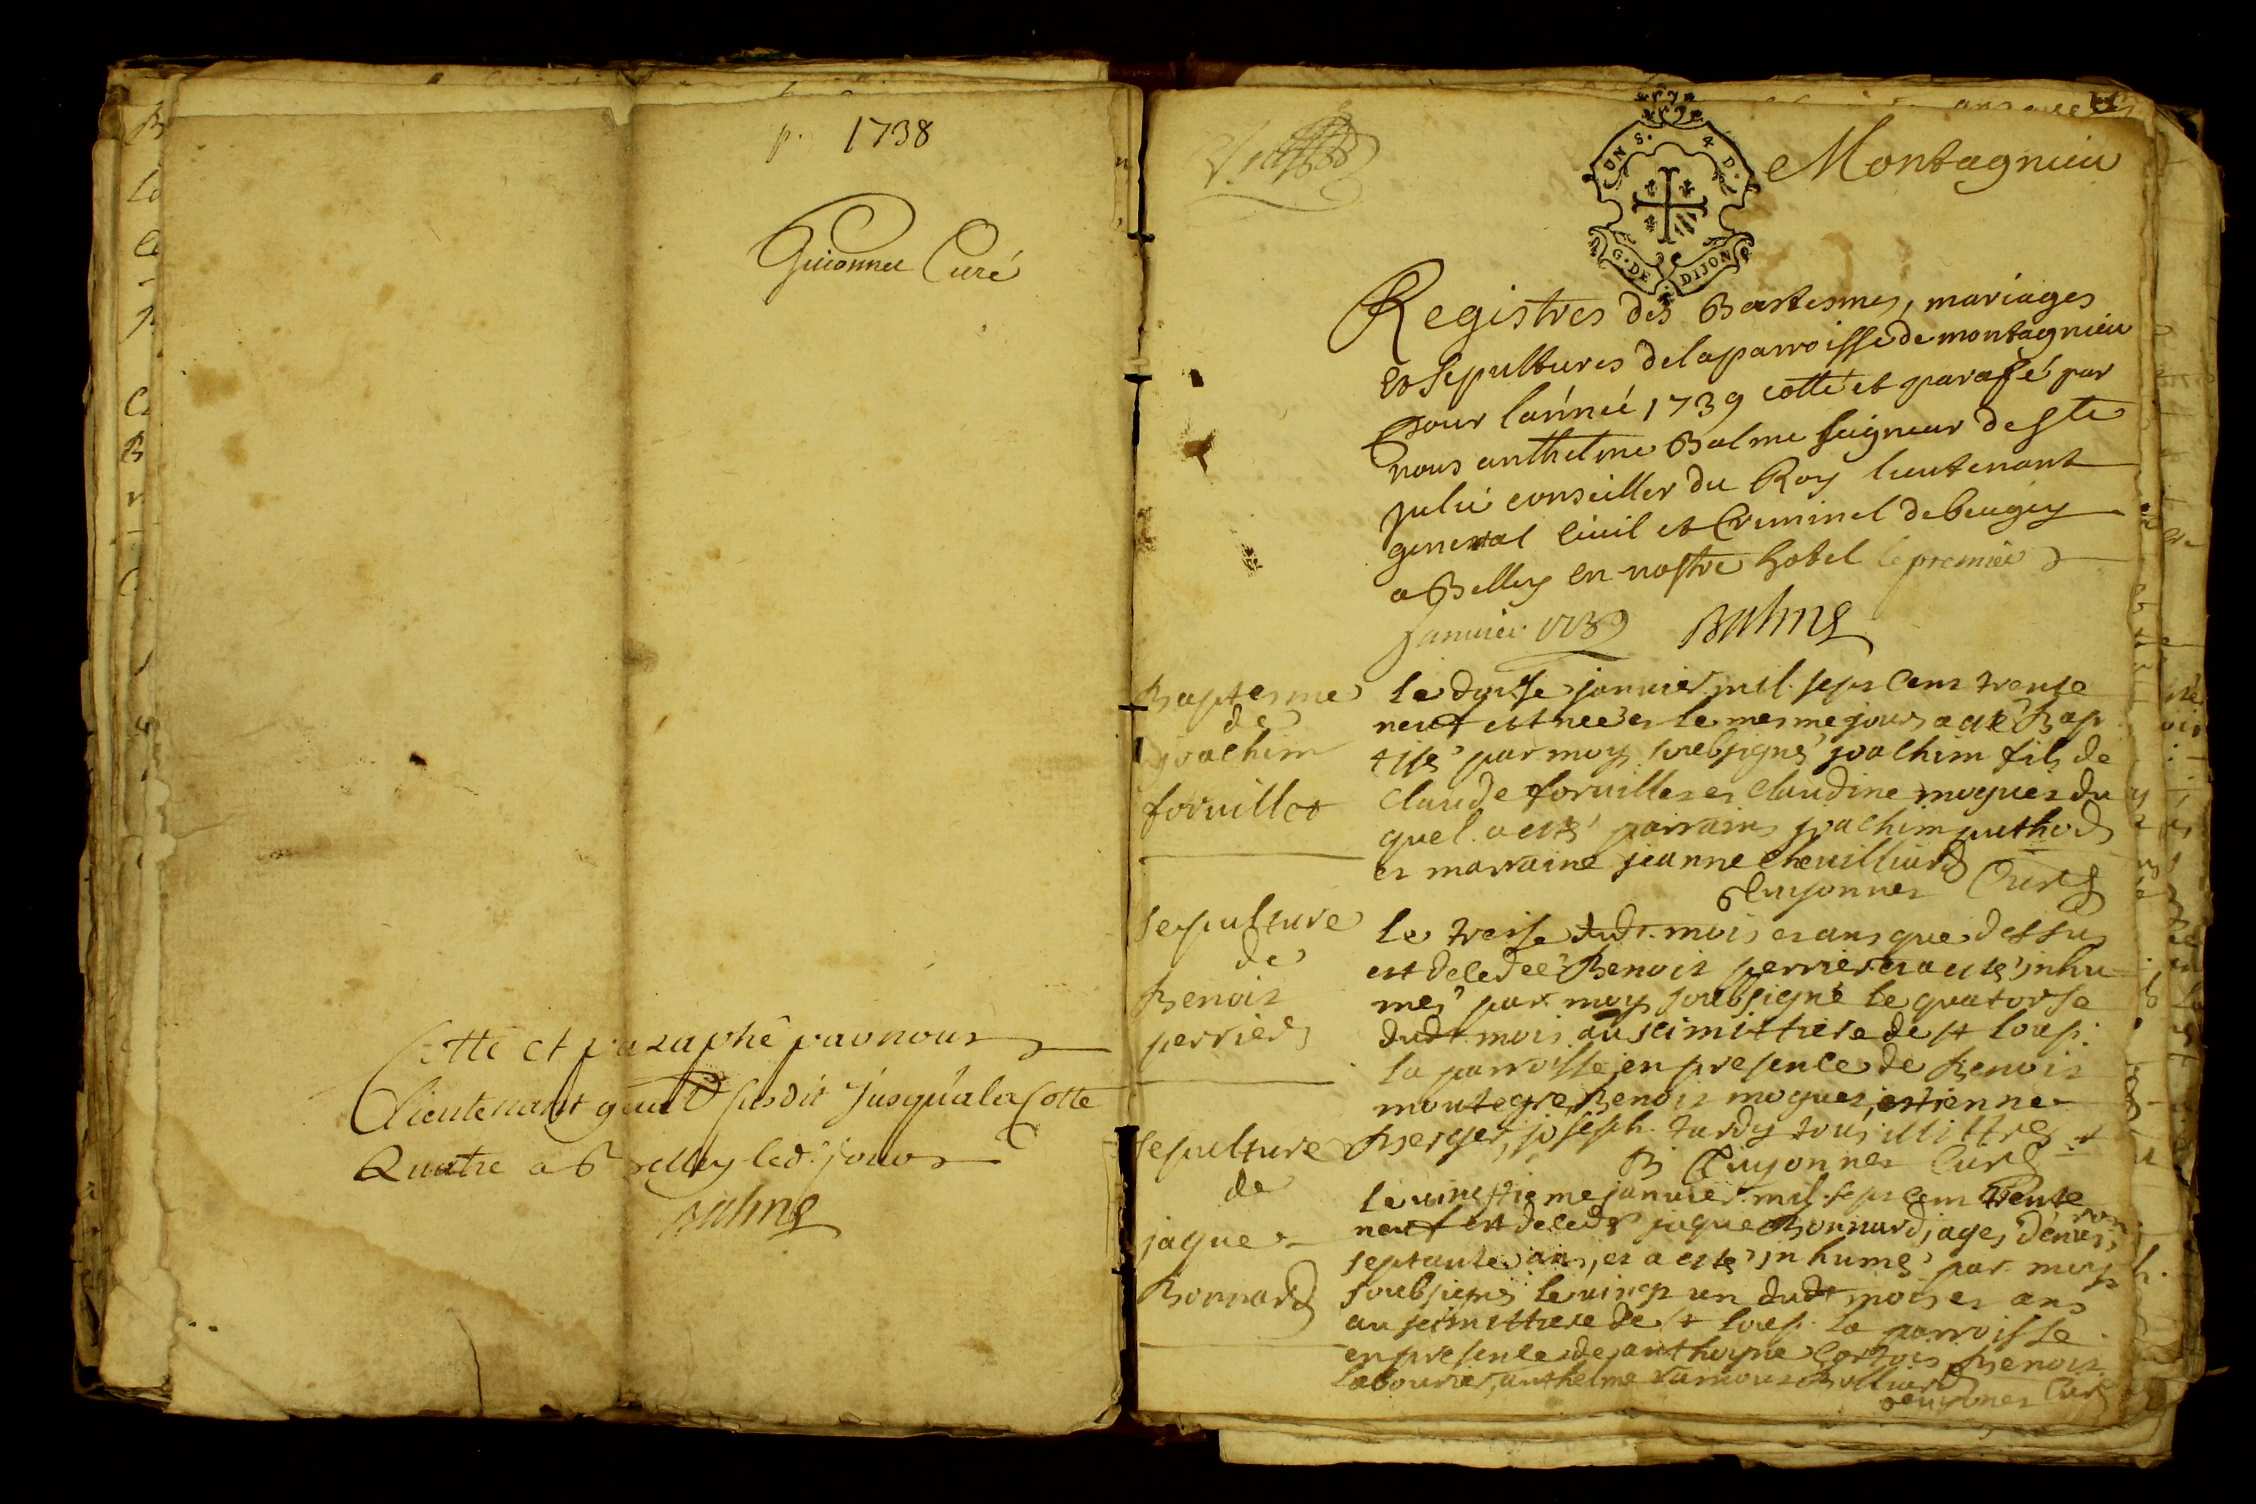 p. 1738
Guionnet Curé
Cotté et paraphé par nous
Lieutenant gnal susdit jusqu'a la Cotte
Quatre a Belley led. jour
Balme
UN S. 4 D.
G. DE DIJON
Montagnieu
Registres des Bastesmes, mariages
et sepultures de la parroisse de montagnieu
pour lannée 1739 cotté et parafé par
nous anthelme Balme seigneur de ste
julie conseiller du Roy lieutenant
general civil et criminel de beugey
a Belley en nostre hotel le premier
janvier 1739 Balme
Baptesme
de
joachim
forvillet
le douse janvier mil sept cent trente
neuf est nee et le mesme jour a eté Bap
tisé par moy soubsigné joachim fils de
Claude forvillet et claudine moguet du
quel a esté parrain joachim juthod
et marraine jeanne chevilliard
Guyonnet Curé
sepulture
de
Benoit
perrier
le treise dudt mois et ans que dessus
est decedée Benoit perrier et a esté inhu
mé par moy soubsigné le quatorse
dudt mois au scimittiere de st loup
la parroisse en presence de Benoit
montegre, Benoit moguet, estienne
Berger, joseph tardy tous illittres
B Guyonnet Curé
sepulture
de
jaque
Bonnard
le vingtieme janvier mil sept cent trente
neuf est decedé jaque Bonnard, agé, denviron
septante ans, et a esté inhumé par moy
soubsigné le vingt un dudt mois et ans
au scimittiere de st loup la parroisse
en presence de anthoyne Benoit
labourier, anthelme
Guyonet Curé